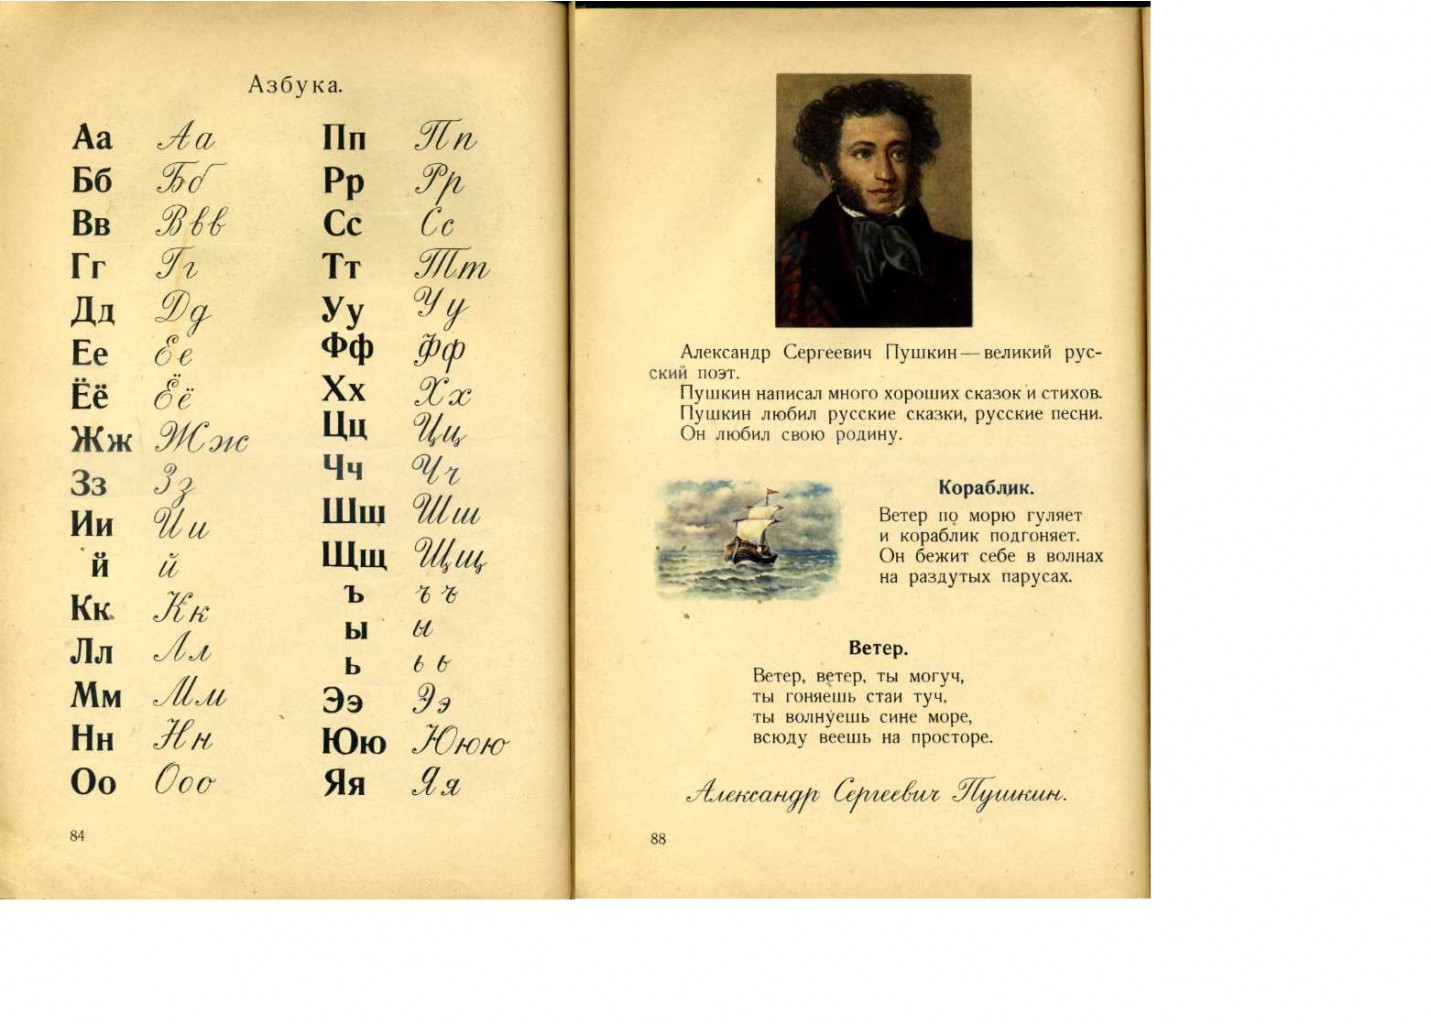 Азбука.
Аа Аа
Бб Бб
Вв Ввв
Гг Гг
Дд Дд
Ее Ее
Ёё Ёё
Жж Жж
Зз Зз
Ии Ии
й й
Кк Кк
Лл Лл
Мм Мм
Нн Нн
Оо Ооо
Пп Пп
Рр Рр
Сс Сс
Тт Тт
Уу Уу
Фф Фф
Хх Хх
Цц Цц
Чч Чч
Шш Шш
Щщ Щщ
ъ ъ ъ
ы ы
ь ь ь
Ээ Ээ
Юю Ююю
Яя Яя
84
Александр Сергеевич Пушкин — великий рус-
ский поэт.
Пушкин написал много хороших сказок и стихов.
Пушкин любил русские сказки, русские песни.
Он любил свою родину.
Кораблик.
Ветер по морю гуляет
и кораблик подгоняет.
Он бежит себе в волнах
на раздутых парусах.
Ветер.
Ветер, ветер, ты могуч,
ты гоняешь стаи туч,
ты волнуешь сине море,
всюду веешь на просторе.
Александр Сергеевич Пушкин.
88